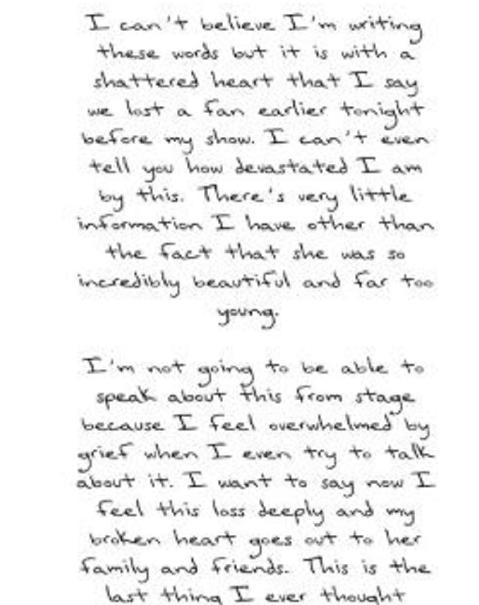 I can't believe I'm writing
these words but it is with a
shattered heart that I say
we lost a fan earlier tonight
before my show. I can't even
tell you how devastated I am
by this. There's very little
information I have other than
the fact that she was so
incredibly beautiful and far too
young.
I'm not going to be able to
speak about this from stage
because I feel overwhelmed by
grief when I even try to talk
about it. I want to say now I
feel this loss deeply and my
broken heart goes out to her
family and friends. This is the
last thing I ever thought